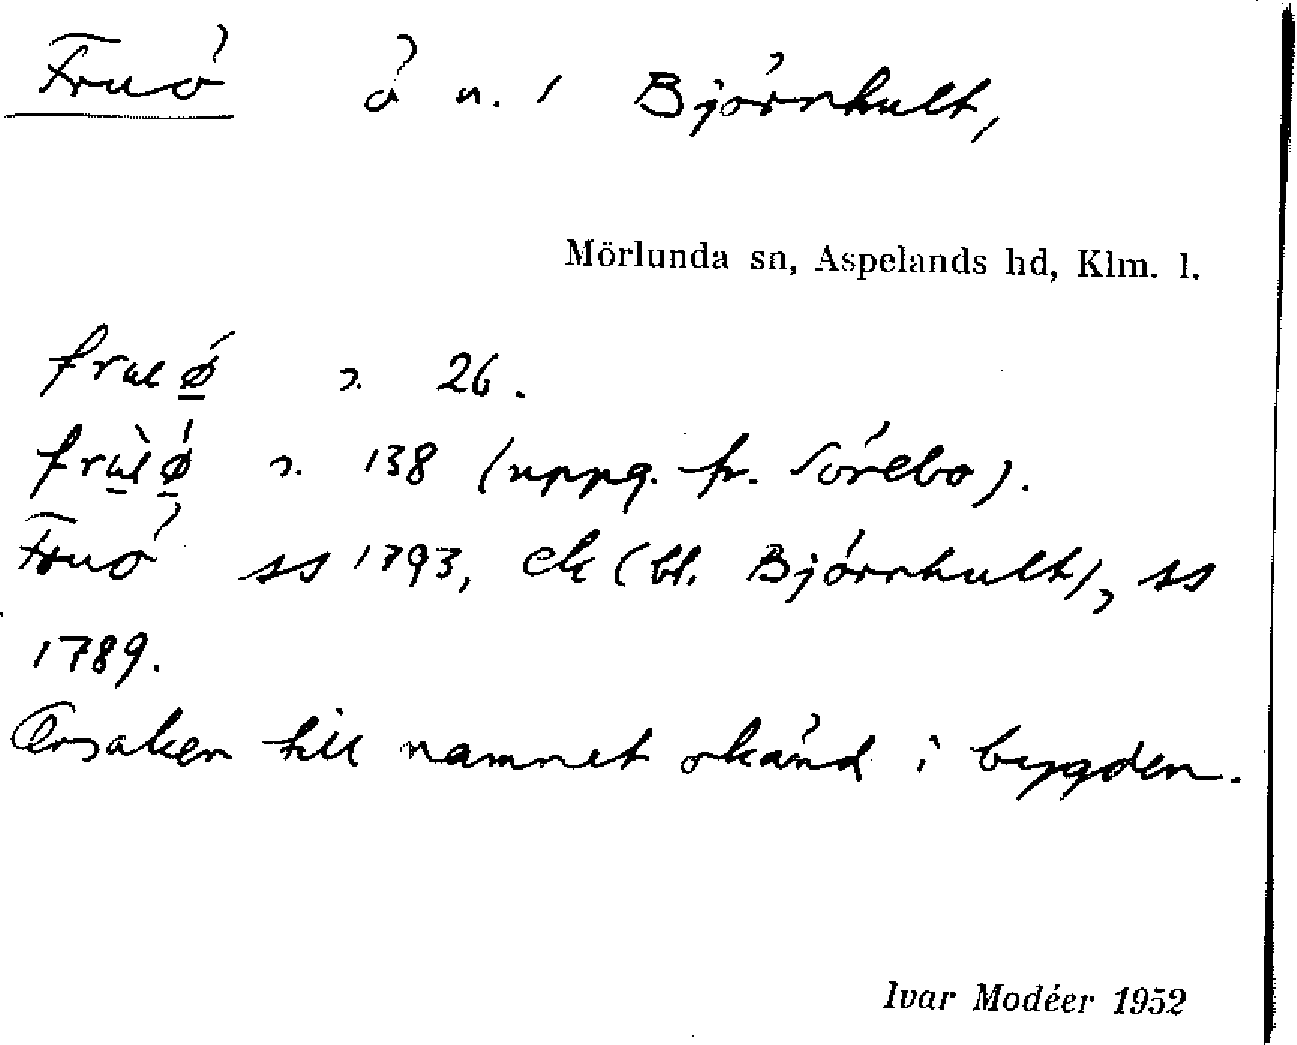 Fruö ö n. i Björnhult,
Mörlunda sn, Aspelands hd, Klm. l.
fruǿ s. 26.
frùǿ s. 138 (uppg. fr. Sörebo).
Fruö ss 1793, ek (bl. Björnhult), ss
1789.
Orsaken till namnet okänd i bygden.
Ivar Modéer 1952